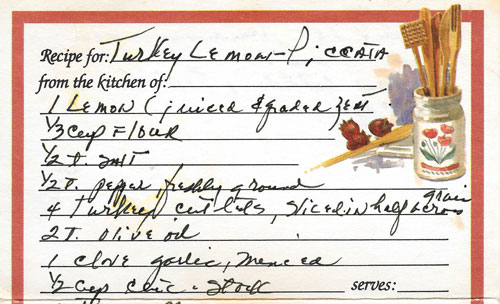 Recipe for: Turkey Lemon-Piccata
from the kitchen of:
1 Lemon (juiced & graded zest
1/3 cup Flour
1/2 t. salt
1/2 t. pepper freshly ground
4 Turkey cutlets, sliced in half across grain
2 T. olive oil
1 clove garlic, minced
1/2 cup chic. stock
serves: